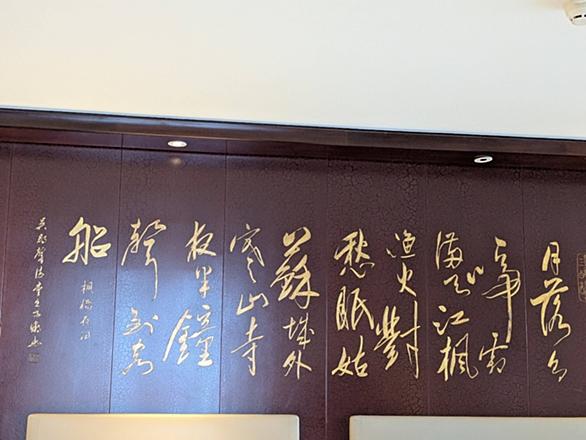 月落烏
啼霜
滿天江楓
漁火對
愁眠姑
蘇城外
寒山寺
夜半鐘
聲到客
船
楓橋夜泊